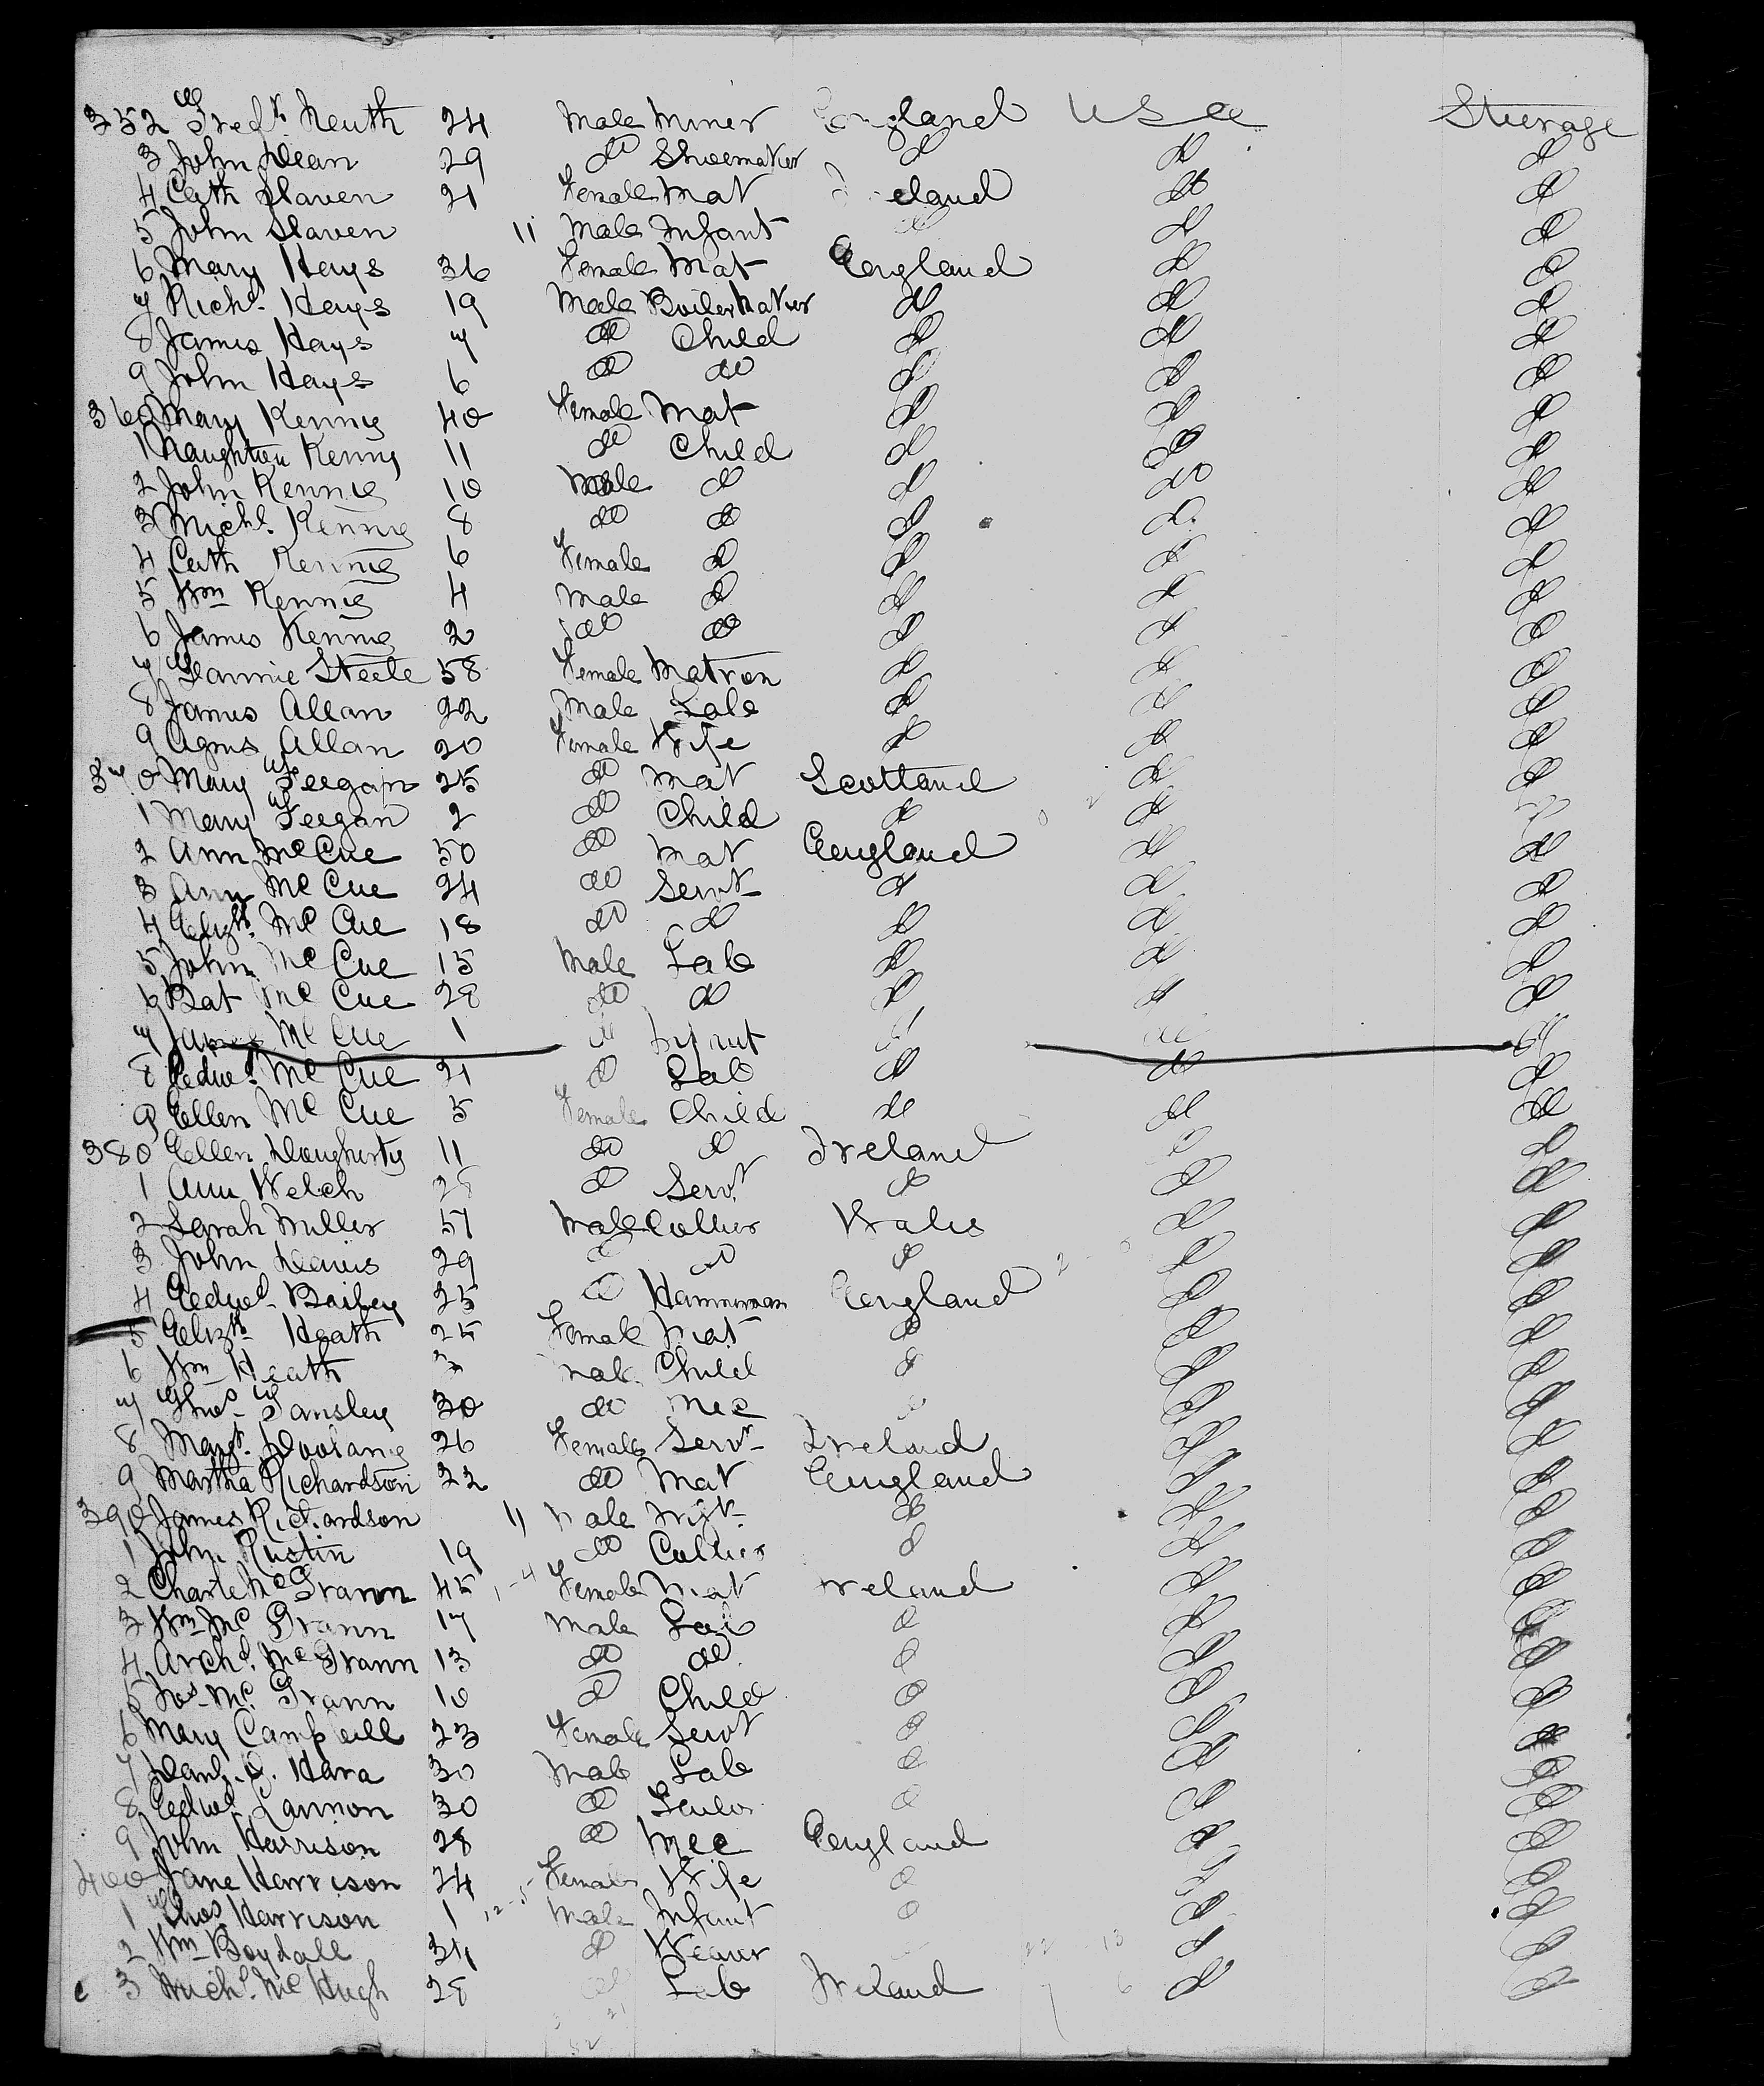 352 Fredk. Neuth 24 Male Miner England U S A Steerage
3 John Dean 29 do Shoemaker do do do
4 Cath Slaven 21 Female Mat Ireland do do
5 John Slaven 11 Male Infant do do do
6 Mary Hays 36 Female Mat England do do
7 Richd. Hays 19 Male Boiler Maker do do do
8 James Hays 7 do Child do do do
9 John Hays 6 do do do do do
360 Mary Kenny 40 Female Mat do do do
1 Naughton Kenny 11 do Child do do do
2 John Kenny 10 Male do do do do
3 Michl. Kenny 8 do do do do do
4 Cath Kenny 6 Female do do do do
5 Wm Kenny 4 Male do do do do
6 James Kenny 2 do do do do do
7 Fannie Steele 58 Female Matron do do do
8 James Allan 22 Male Lab do do do
9 Agnes Allan 20 Female Wife do do do
370 Mary Feegan 25 do Mat Scotland do do
1 Mary Feegan 2 do Child do do do
2 Ann McCue 50 do Mat England do do
3 Ann McCue 24 do Servt do do do
4 Elizth. McCue 18 do do do do do
5 John McCue 15 Male Lab do do do
6 Pat McCue 28 do do do do do
7 James McCue 1 do Infant do do do
8 Edwd. McCue 21 do Lab do do do
9 Ellen McCue 5 Female Child do do do
380 Ellen Dougherty 11 do do Ireland do do
1 Ann Welch 28 do Servt do do do
2 Sarah Miller 57 Male Collier Wales do do
3 John Davis 29 do do do do do
4 Edwd. Bailey 25 do Hammerman England do do
5 Elizth Heath 25 Female Mat do do do
6 Wm Heath Male Child do do do
7 Thos. Tansley 30 do Mec do do do
8 Margt. 26 Female Servt Ireland do do
9 Martha Richardson 22 do Mat England do do
390 James Richardson 11 Male Inft do do do
1 John Rustin 19 do Collier do do do
2 McGrann 45 Female Mat Ireland do do
3 Wm McGrann 17 Male Lab do do do
4 Archd. McGrann 13 do do do do do
5 Jos. McGrann 10 do Child do do do
6 Mary Campbell 23 Female Servt do do do
7 Danl. O. Hara 30 Male Lab do do do
8 Edwd Lannon 30 do do do do
9 John Harrison 28 do Mec England do do
400 Jane Harrison 24 Female Wife do do do
1 Thos Harrison 1 Male Infant do do do
2 Wm Boydall 34 do Weaver do do
3 Michl. McHugh 28 do Lab Ireland do do